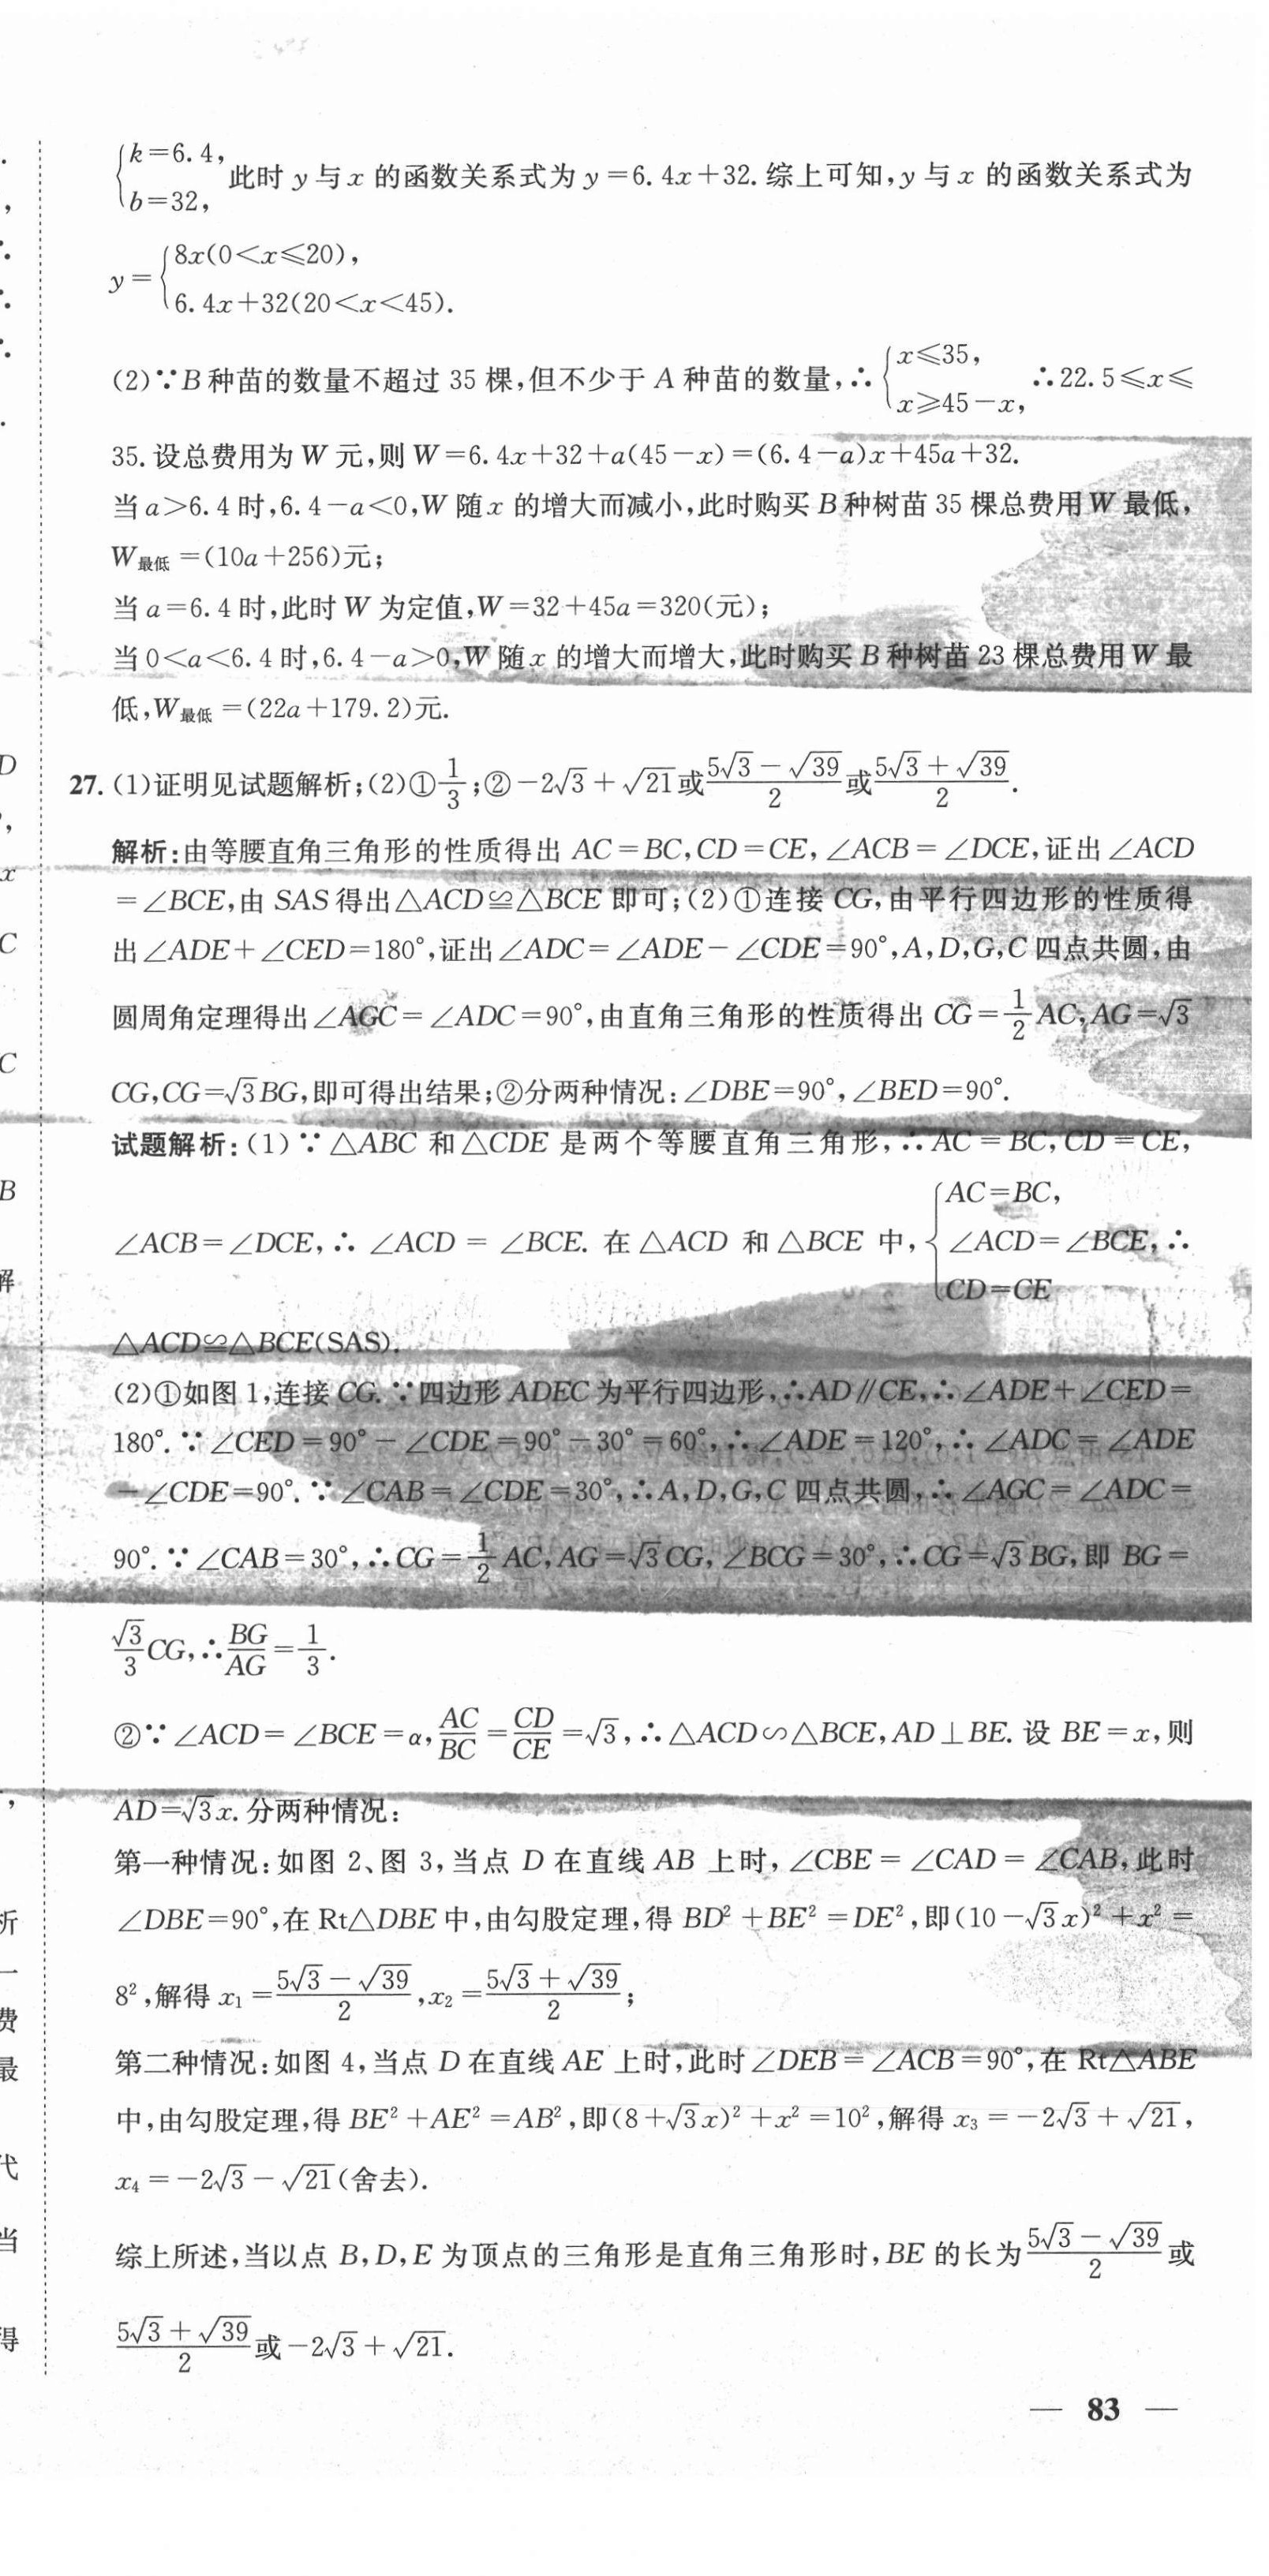 {k=6.4, b=32, 此时 y 与 x 的函数关系式为 y=6.4x+32. 综上可知,y 与 x 的函数关系式为
y={8x(0<x≤20), 6.4x+32(20<x<45).
(2)∵B 种苗的数量不超过 35 棵,但不少于 A 种苗的数量,∴{x≤35, x≥45-x, ∴22.5≤x≤
35. 设总费用为 W 元,则 W=6.4x+32+a(45-x)=(6.4-a)x+45a+32.
当 a>6.4 时,6.4-a<0,W 随 x 的增大而减小,此时购买 B 种树苗 35 棵总费用 W 最低,
W最低=(10a+256)元;
当 a=6.4 时,此时 W 为定值,W=32+45a=320(元);
当 0<a<6.4 时,6.4-a>0,W 随 x 的增大而增大,此时购买 B 种树苗 23 棵总费用 W 最
低,W最低=(22a+179.2)元.
27. (1)证明见试题解析;(2)①1/3;②-2√3+√21或(5√3-√39)/2或(5√3+√39)/2.
解析:由等腰直角三角形的性质得出 AC=BC,CD=CE,∠ACB=∠DCE,证出∠ACD
=∠BCE,由 SAS 得出△ACD≌△BCE 即可;(2)①连接 CG,由平行四边形的性质得
出∠ADE+∠CED=180°,证出∠ADC=∠ADE-∠CDE=90°,A,D,G,C 四点共圆,由
圆周角定理得出∠AGC=∠ADC=90°,由直角三角形的性质得出 CG=1/2 AC,AG=√3
CG,CG=√3BG,即可得出结果;②分两种情况:∠DBE=90°,∠BED=90°.
试题解析:(1)∵△ABC 和△CDE 是两个等腰直角三角形,∴AC=BC,CD=CE,
∠ACB=∠DCE,∴∠ACD=∠BCE. 在△ACD 和△BCE 中,{AC=BC, ∠ACD=∠BCE, CD=CE ∴
△ACD≌△BCE(SAS).
(2)①如图 1,连接 CG.∵四边形 ADEC 为平行四边形,∴AD∥CE,∴∠ADE+∠CED=
180°.∵∠CED=90°-∠CDE=90°-30°=60°,∴∠ADE=120°,∴∠ADC=∠ADE
-∠CDE=90°.∵∠CAB=∠CDE=30°,∴A,D,G,C 四点共圆,∴∠AGC=∠ADC=
90°.∵∠CAB=30°,∴CG=1/2 AC,AG=√3CG,∠BCG=30°,∴CG=√3BG,即 BG=
√3/3 CG,∴BG/AG=1/3.
②∵∠ACD=∠BCE=α,AC/BC=CD/CE=√3,∴△ACD∽△BCE,AD⊥BE. 设 BE=x,则
AD=√3x. 分两种情况:
第一种情况:如图 2、图 3,当点 D 在直线 AB 上时,∠CBE=∠CAD=∠CAB,此时
∠DBE=90°,在 Rt△DBE 中,由勾股定理,得 BD²+BE²=DE²,即(10-√3x)²+x²=
8²,解得 x₁=(5√3-√39)/2,x₂=(5√3+√39)/2;
第二种情况:如图 4,当点 D 在直线 AE 上时,此时∠DEB=∠ACB=90°,在 Rt△ABE
中,由勾股定理,得 BE²+AE²=AB²,即(8+√3x)²+x²=10²,解得 x₃=-2√3+√21,
x₄=-2√3-√21(舍去).
综上所述,当以点 B,D,E 为顶点的三角形是直角三角形时,BE 的长为(5√3-√39)/2或
(5√3+√39)/2或-2√3+√21.
— 83 —